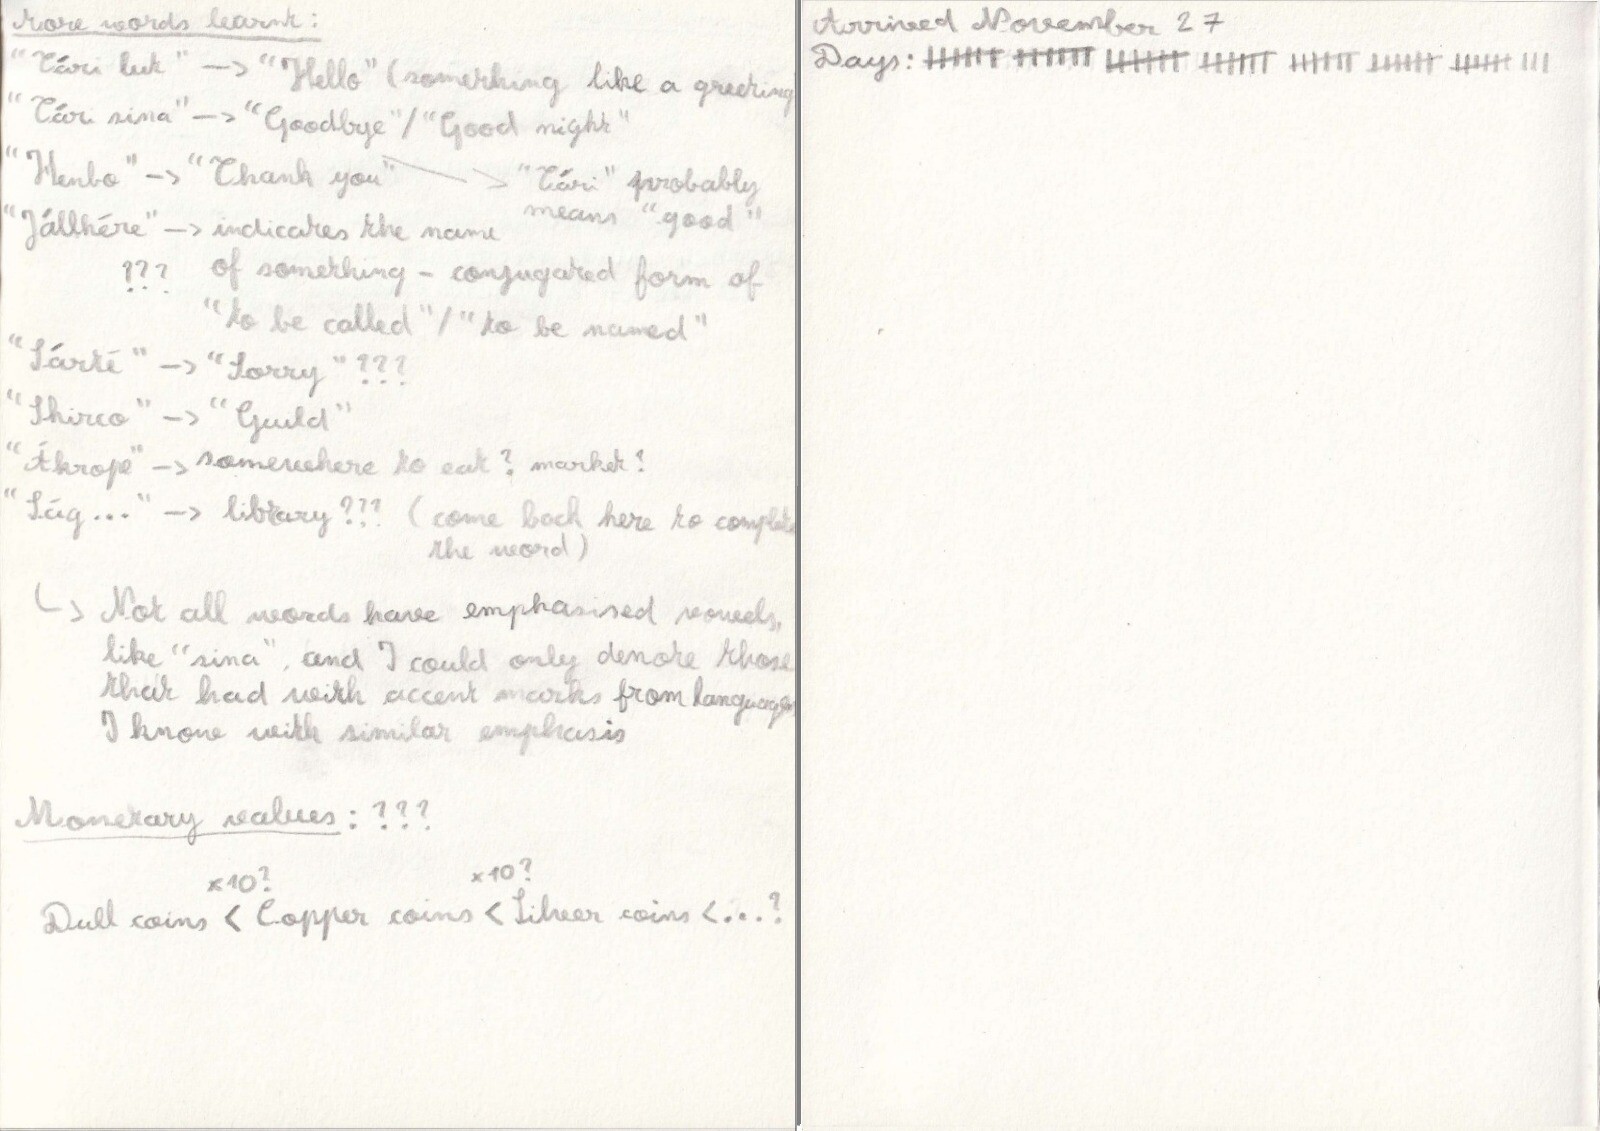 More words learnt:
"Tári luk" –> "Hello" (something like a greeting
"Tári sina" –> "Goodbye"/"Good night"
"Henbo" –> "Thank you" –> "Tári" probably
means "good"
"Jállhére" –> indicates the name
??? of something – conjugated form of
"to be called"/"to be named"
"Sárté" –> "Sorry" ???
"Shirco" –> "Guild"
"Ákropé" –> somewhere to eat? market?
"Ság..." –> library??? (come back here to complete
the word)
↳ Not all words have emphasised vowels,
like "sina", and I could only denote those
that had with accent marks from languages
I know with similar emphasis
Monetary values: ???
x10? x10?
Dull coins < Copper coins < Silver coins <...?
Arrived November 27
Days: